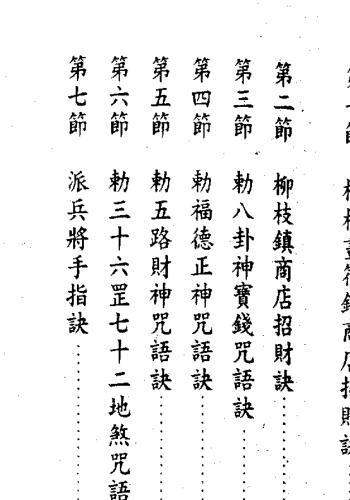 第一節 符鎮商店招財訣
第二節 柳枝鎮商店招財訣………
第三節 勅八卦神寶錢咒語訣……
第四節 勅福德正神咒語訣………
第五節 勅五路財神咒語訣………
第六節 勅三十六罡七十二地煞咒語
第七節 派兵將手指訣…………